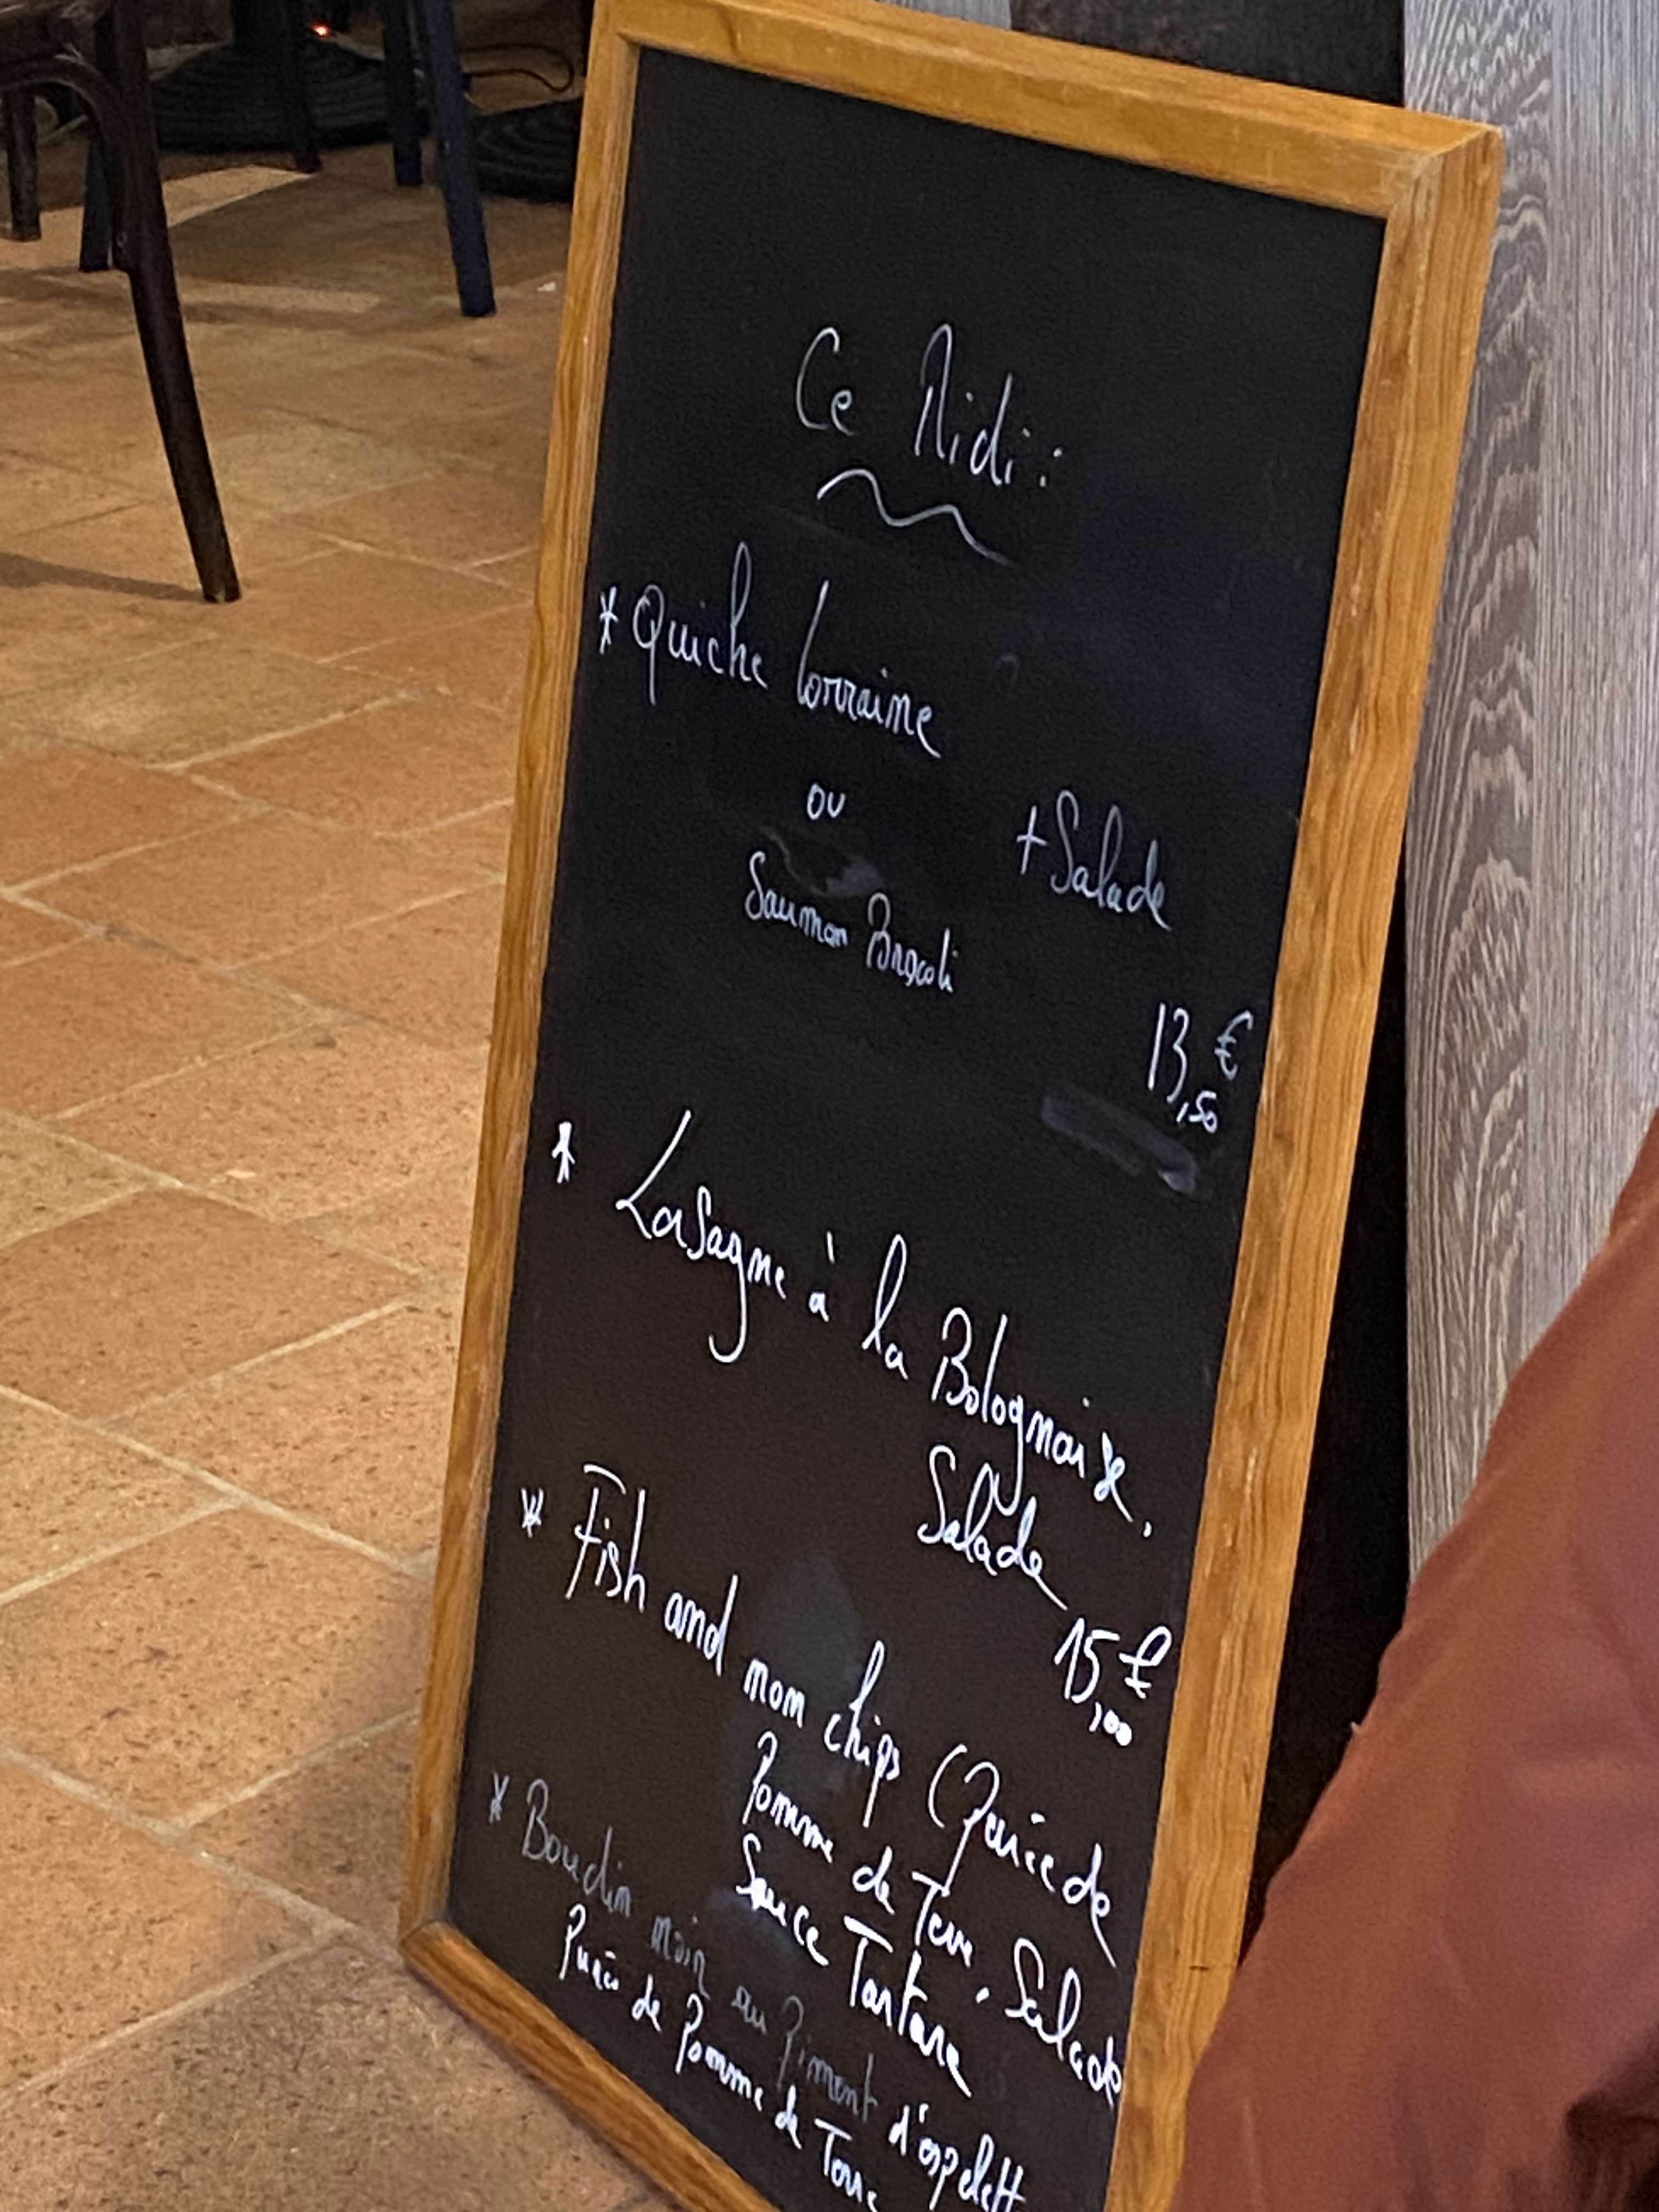 Ce Midi :
* Quiche lorraine
ou
+ Salade
Saumon Brocoli
13,50 €
* Lasagne à la Bolognaise,
Salade
15,00 €
* Fish and mon chips (Purée de
Pomme de Terre, Salade
Sauce Tartare
* Boudin noir au Piment d'espelett
Purée de Pomme de Terre